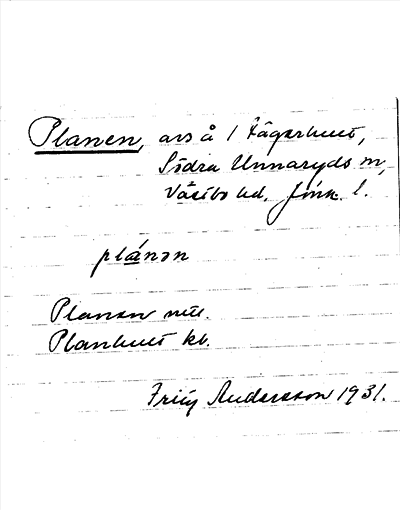 Planen, avs å 1 Fågerhult,
Södra Unnaryds sn,
Västbo hd, Jönk. l.
plánən
Planen mtl.
Planhult kb.
Fritz Andersson 1931.